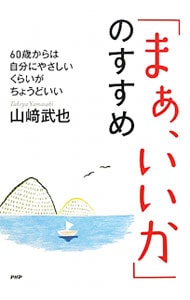 「まぁ、いいか」
のすすめ
60歳からは
自分にやさしい
くらいが
ちょうどいい
Takeya Yamasaki
山﨑武也
PHP